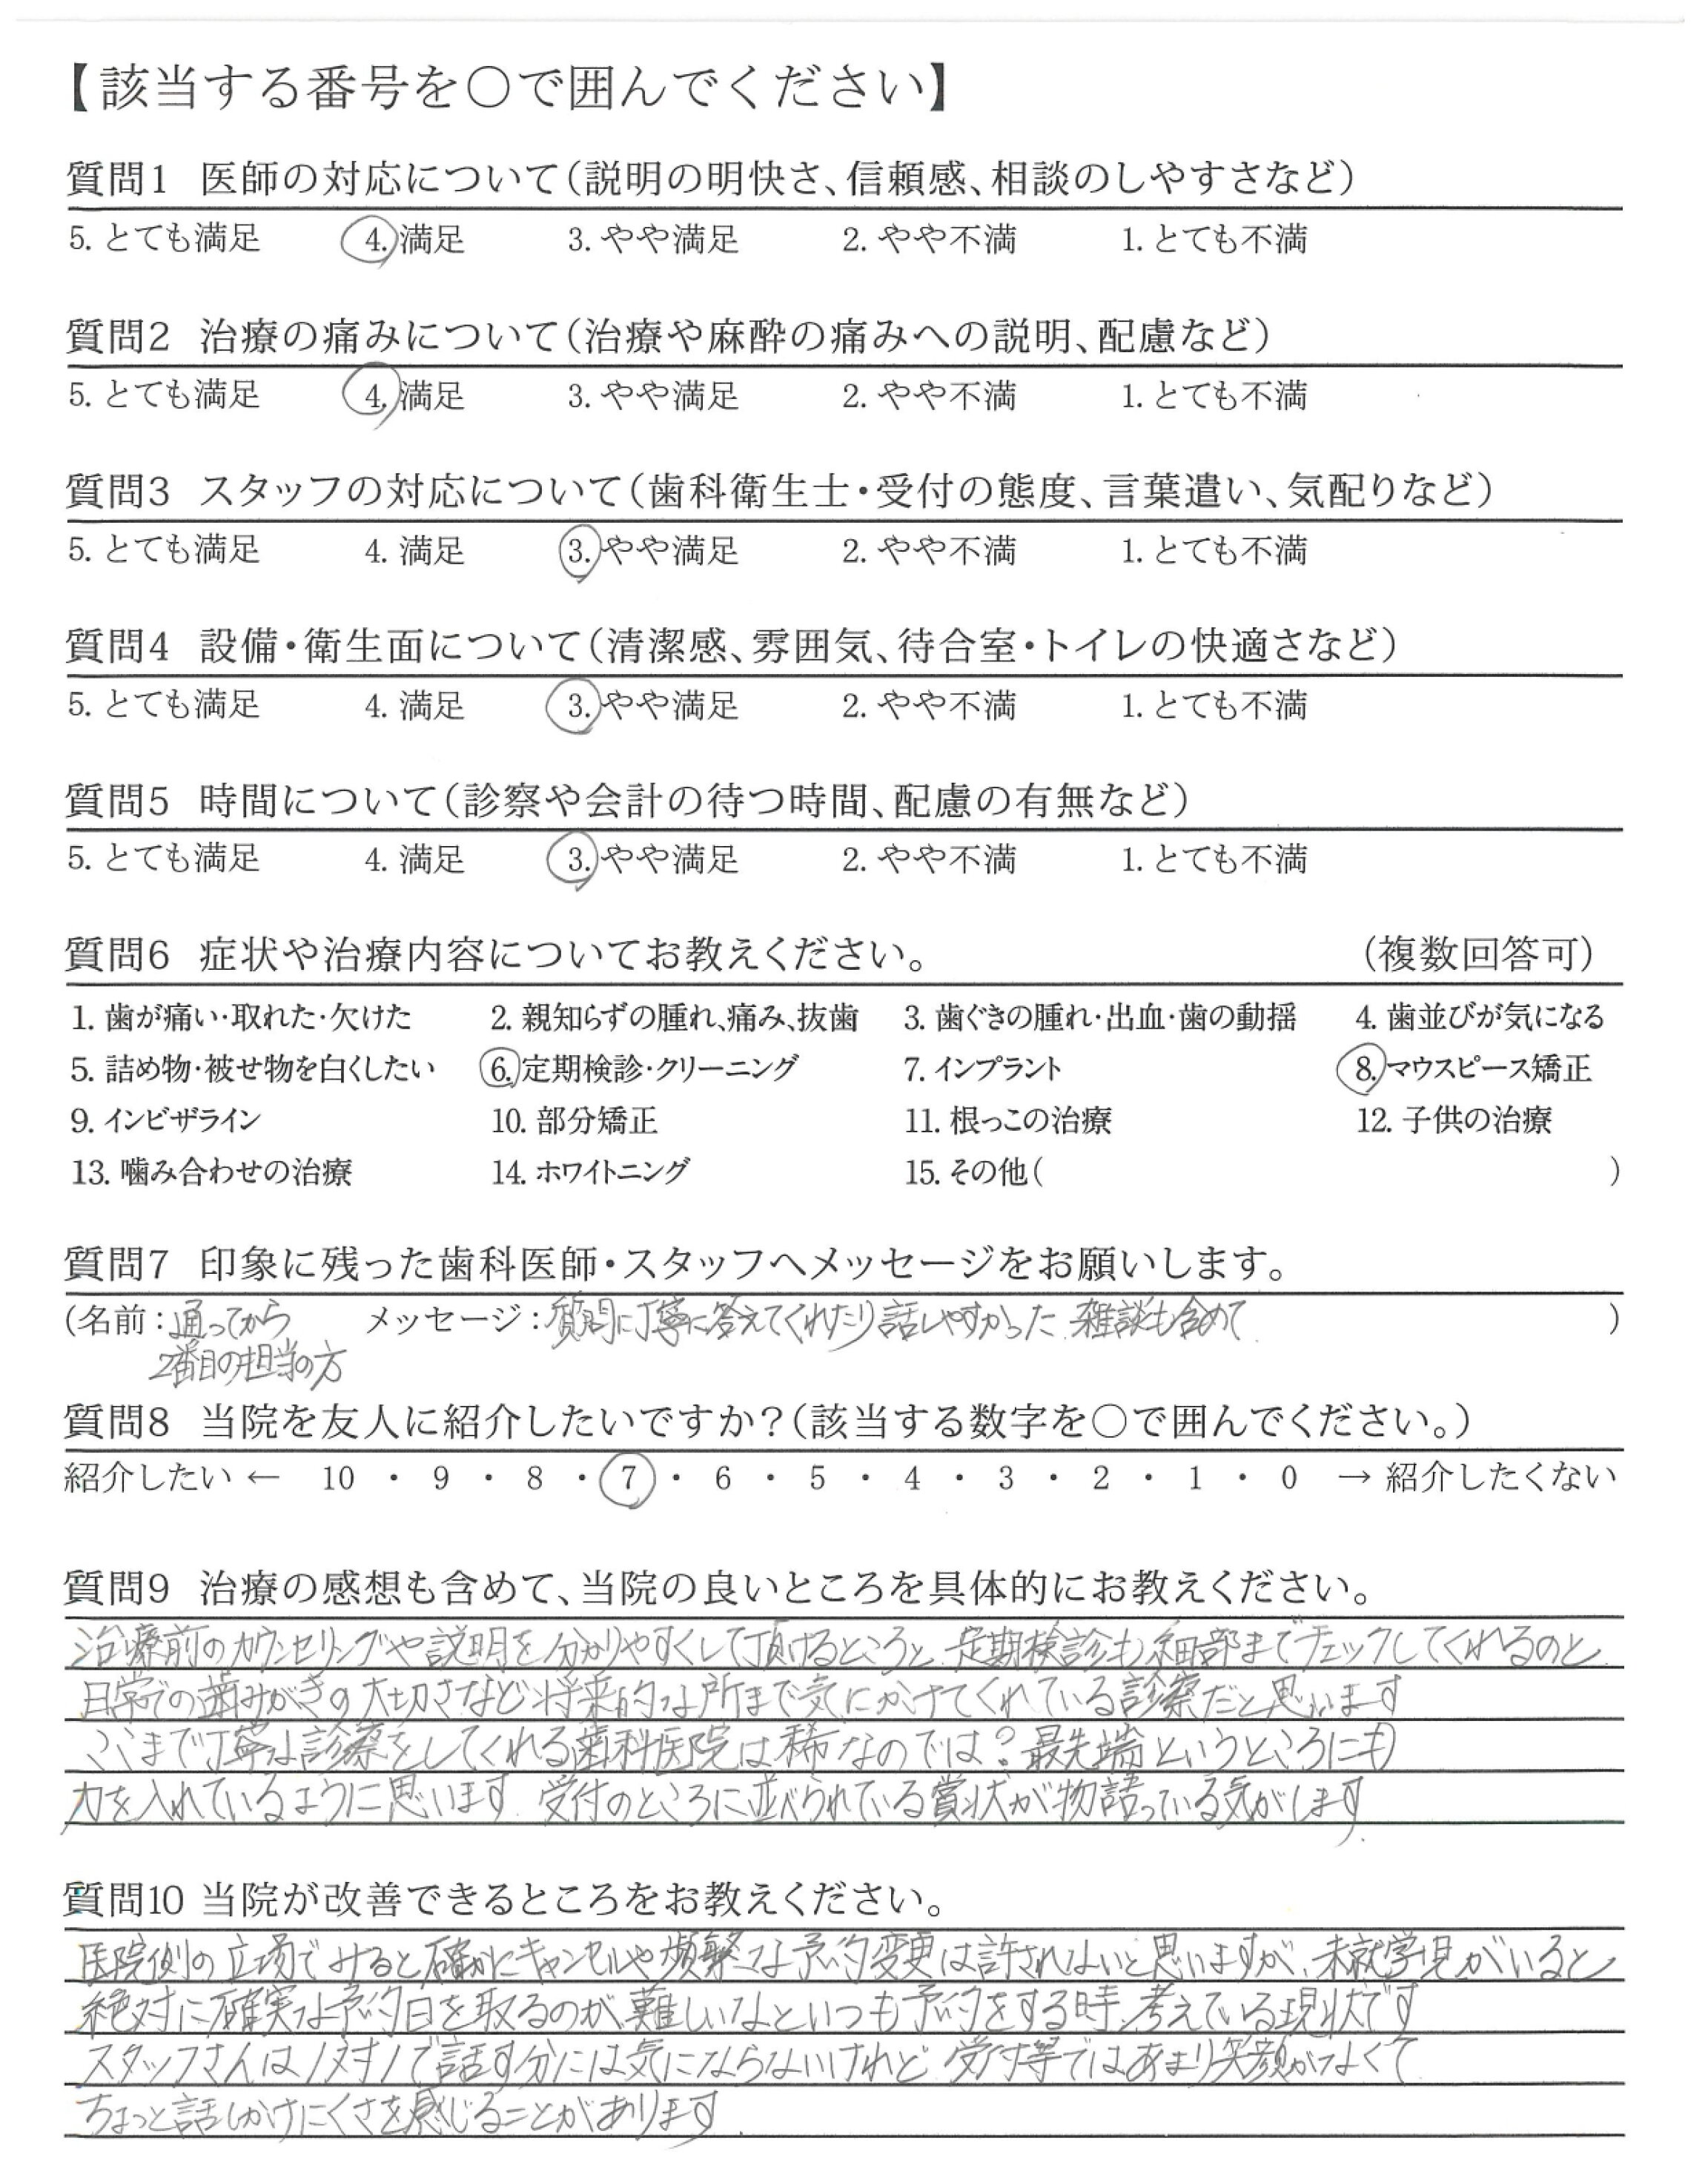 【該当する番号を○で囲んでください】
質問1 医師の対応について(説明の明快さ、信頼感、相談のしやすさなど)
5. とても満足 4. 満足 3. やや満足 2. やや不満 1. とても不満
質問2 治療の痛みについて(治療や麻酔の痛みへの説明、配慮など)
5. とても満足 4. 満足 3. やや満足 2. やや不満 1. とても不満
質問3 スタッフの対応について(歯科衛生士・受付の態度、言葉遣い、気配りなど)
5. とても満足 4. 満足 3. やや満足 2. やや不満 1. とても不満
質問4 設備・衛生面について(清潔感、雰囲気、待合室・トイレの快適さなど)
5. とても満足 4. 満足 3. やや満足 2. やや不満 1. とても不満
質問5 時間について(診察や会計の待つ時間、配慮の有無など)
5. とても満足 4. 満足 3. やや満足 2. やや不満 1. とても不満
質問6 症状や治療内容についてお教えください。 (複数回答可)
1. 歯が痛い・取れた・欠けた 2. 親知らずの腫れ、痛み、抜歯 3. 歯ぐきの腫れ・出血・歯の動揺 4. 歯並びが気になる
5. 詰め物・被せ物を白くしたい 6. 定期検診・クリーニング 7. インプラント 8. マウスピース矯正
9. インビザライン 10. 部分矯正 11. 根っこの治療 12. 子供の治療
13. 噛み合わせの治療 14. ホワイトニング 15. その他( )
質問7 印象に残った歯科医師・スタッフへメッセージをお願いします。
(名前:通ってから メッセージ:質問に丁寧に答えてくれたり話しやすかった 雑談も含めて )
2番目の担当の方
質問8 当院を友人に紹介したいですか?(該当する数字を○で囲んでください。)
紹介したい ← 10 ・ 9 ・ 8 ・ 7 ・ 6 ・ 5 ・ 4 ・ 3 ・ 2 ・ 1 ・ 0 → 紹介したくない
質問9 治療の感想も含めて、当院の良いところを具体的にお教えください。
治療前のカウンセリングや説明を分かりやすくして頂けるところと、定期検診も細部までチェックしてくれるのと、
日常での歯みがきの大切さなど将来的な所まで気にかけてくれている診察だと思います
ここまで丁寧な診察をしてくれる歯科医院は稀なのでは?最先端というところにも
力を入れているように思います 受付のところに並べられている賞状が物語っている気がします.
質問10 当院が改善できるところをお教えください。
医院側の立場でみると確かにキャンセルや頻繁な予約変更は許されないと思いますが、未就学児がいると
絶対に確実な予約日を取るのが難しいなといつも予約をする時、考えている現状です
スタッフさんは1対1で話す分には気にならないけれど 受付等ではあまり笑顔がなくて
ちょっと話しかけにくさを感じることがあります.